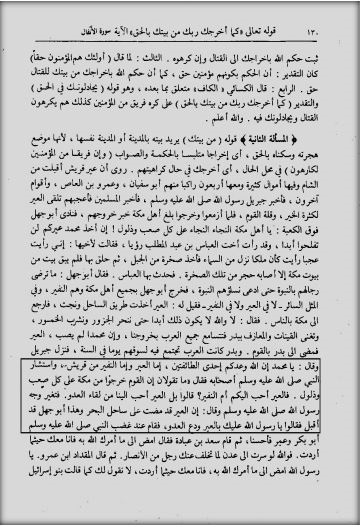 ١٣٠ قوله تعالى «كما أخرجك ربك من بيتك بالحق» الآية سورة الأنفال
ثبت حكم الله باخراجك الى القتال وإن كرهوه . الثالث : لما قال ( أولئك هم المؤمنون حقاً
كان التقدير : أن الحكم بكونهم مؤمنين حق ، كما أن حكم الله باخراجك من بيتك للقتال
حق . الرابع : قال الكسائي ( الكاف ) متعلق بما بعده ، وهو قوله ( يجادلونك في الحق )
والتقدير ( كما أخرجك ربك من بيتك بالحق ) على كره فريق من المؤمنين كذلك هم يكرهون
القتال ويجادلونك فيه . والله أعلم .
﴿ المسألة الثانية ﴾ قوله ( من بيتك ) يريد بيته بالمدينة أو المدينة نفسها ، لأنها موضع
هجرته وسكناه بالحق ، أى إخراجا متلبسا بالحكمة والصواب ( وإن فريقا من المؤمنين
لكارهون ) في محل الحال ، أى أخرجك في حال كراهيتهم . روى أن عير قريش أقبلت من
الشام وفيها أموال كثيرة ومعها أربعون راكبا منهم أبو سفيان ، وعمرو بن العاص ، وأقوام
آخرون ، فأخبر جبريل رسول الله صلى الله عليه وسلم ، فأخبر المسلمين فأعجبهم تلقى العير
لكثرة الخير ، وقلة القوم ، فلما أزمعوا وخرجوا بلغ أهل مكة خبر خروجهم ، فنادى أبو جهل
فوق الكعبة : يا أهل مكة النجاء النجاء على كل صعب وذلول ! إن أخذ محمد عيركم لن
تفلحوا أبدا ، وقد رأت أخت العباس بن عبد المطلب رؤيا ، فقالت لأخيها : إنى رأيت
عجبا رأيت كأن ملكا نزل من السماء فأخذ صخرة من الجبل ، ثم حلق بها فلم يبق بيت من
بيوت مكة إلا أصابه حجر من تلك الصخرة . فحدث بها العباس . فقال أبو جهل : ما ترضى
رجالهم بالنبوة حتى ادعى نساؤهم النبوة ، فخرج أبو جهل بجميع أهل مكة وهم النفير ، وفي
المثل السائر - لا في العير ولا في النفير - فقيل له : العير أخذت طريق الساحل ونجت ، فارجع
الى مكة بالناس . فقال : لا والله لا يكون ذلك أبدا حتى ننحر الجزور ونشرب الخمور ،
وتغنى القينات والمعازف ببدر فتتسامع جميع العرب بخروجنا ، وإن محمدا لم يصب ، العير
فمضى الى بدر بالقوم . وبدر كانت العرب تجتمع فيه لسوقهم يوما في السنة ، فنزل جبريل
وقال : يا محمد إن الله وعدكم إحدى الطائفتين ، إما العير وإما النفير من قريش ، واستشار
النبي صلى الله عليه وسلم أصحابه فقال «ما تقولان إن القوم خرجوا من مكة على كل صعب
وذلول . فالعير أحب اليكم أم النفير؟ قالوا بل العير أحب الينا من لقاء العدو. فتغير وجه
رسول الله صلى الله عليه وسلم وقال: إن العير قد مضت على ساحل البحر وهذا أبو جهل قد
أقبل فقالوا يا رسول الله عليك بالعير ودع العدو، فقام عند غضب النبي صلى الله عليه وسلم
أبو بكر وعمر فأحسنا، ثم قام سعد بن عبادة فقال امض الى ما أمرك الله به فانا معك حيثما
أردت. فوالله لو سرت الى عدن لما تخلف عنك رجل من الأنصار. ثم قال المقداد ابن عمرو. يا
رسول الله امض الى ما أمرك الله به، فانا معك حيثما أردت، لا نقول لك كما قالت بنو إسرائيل